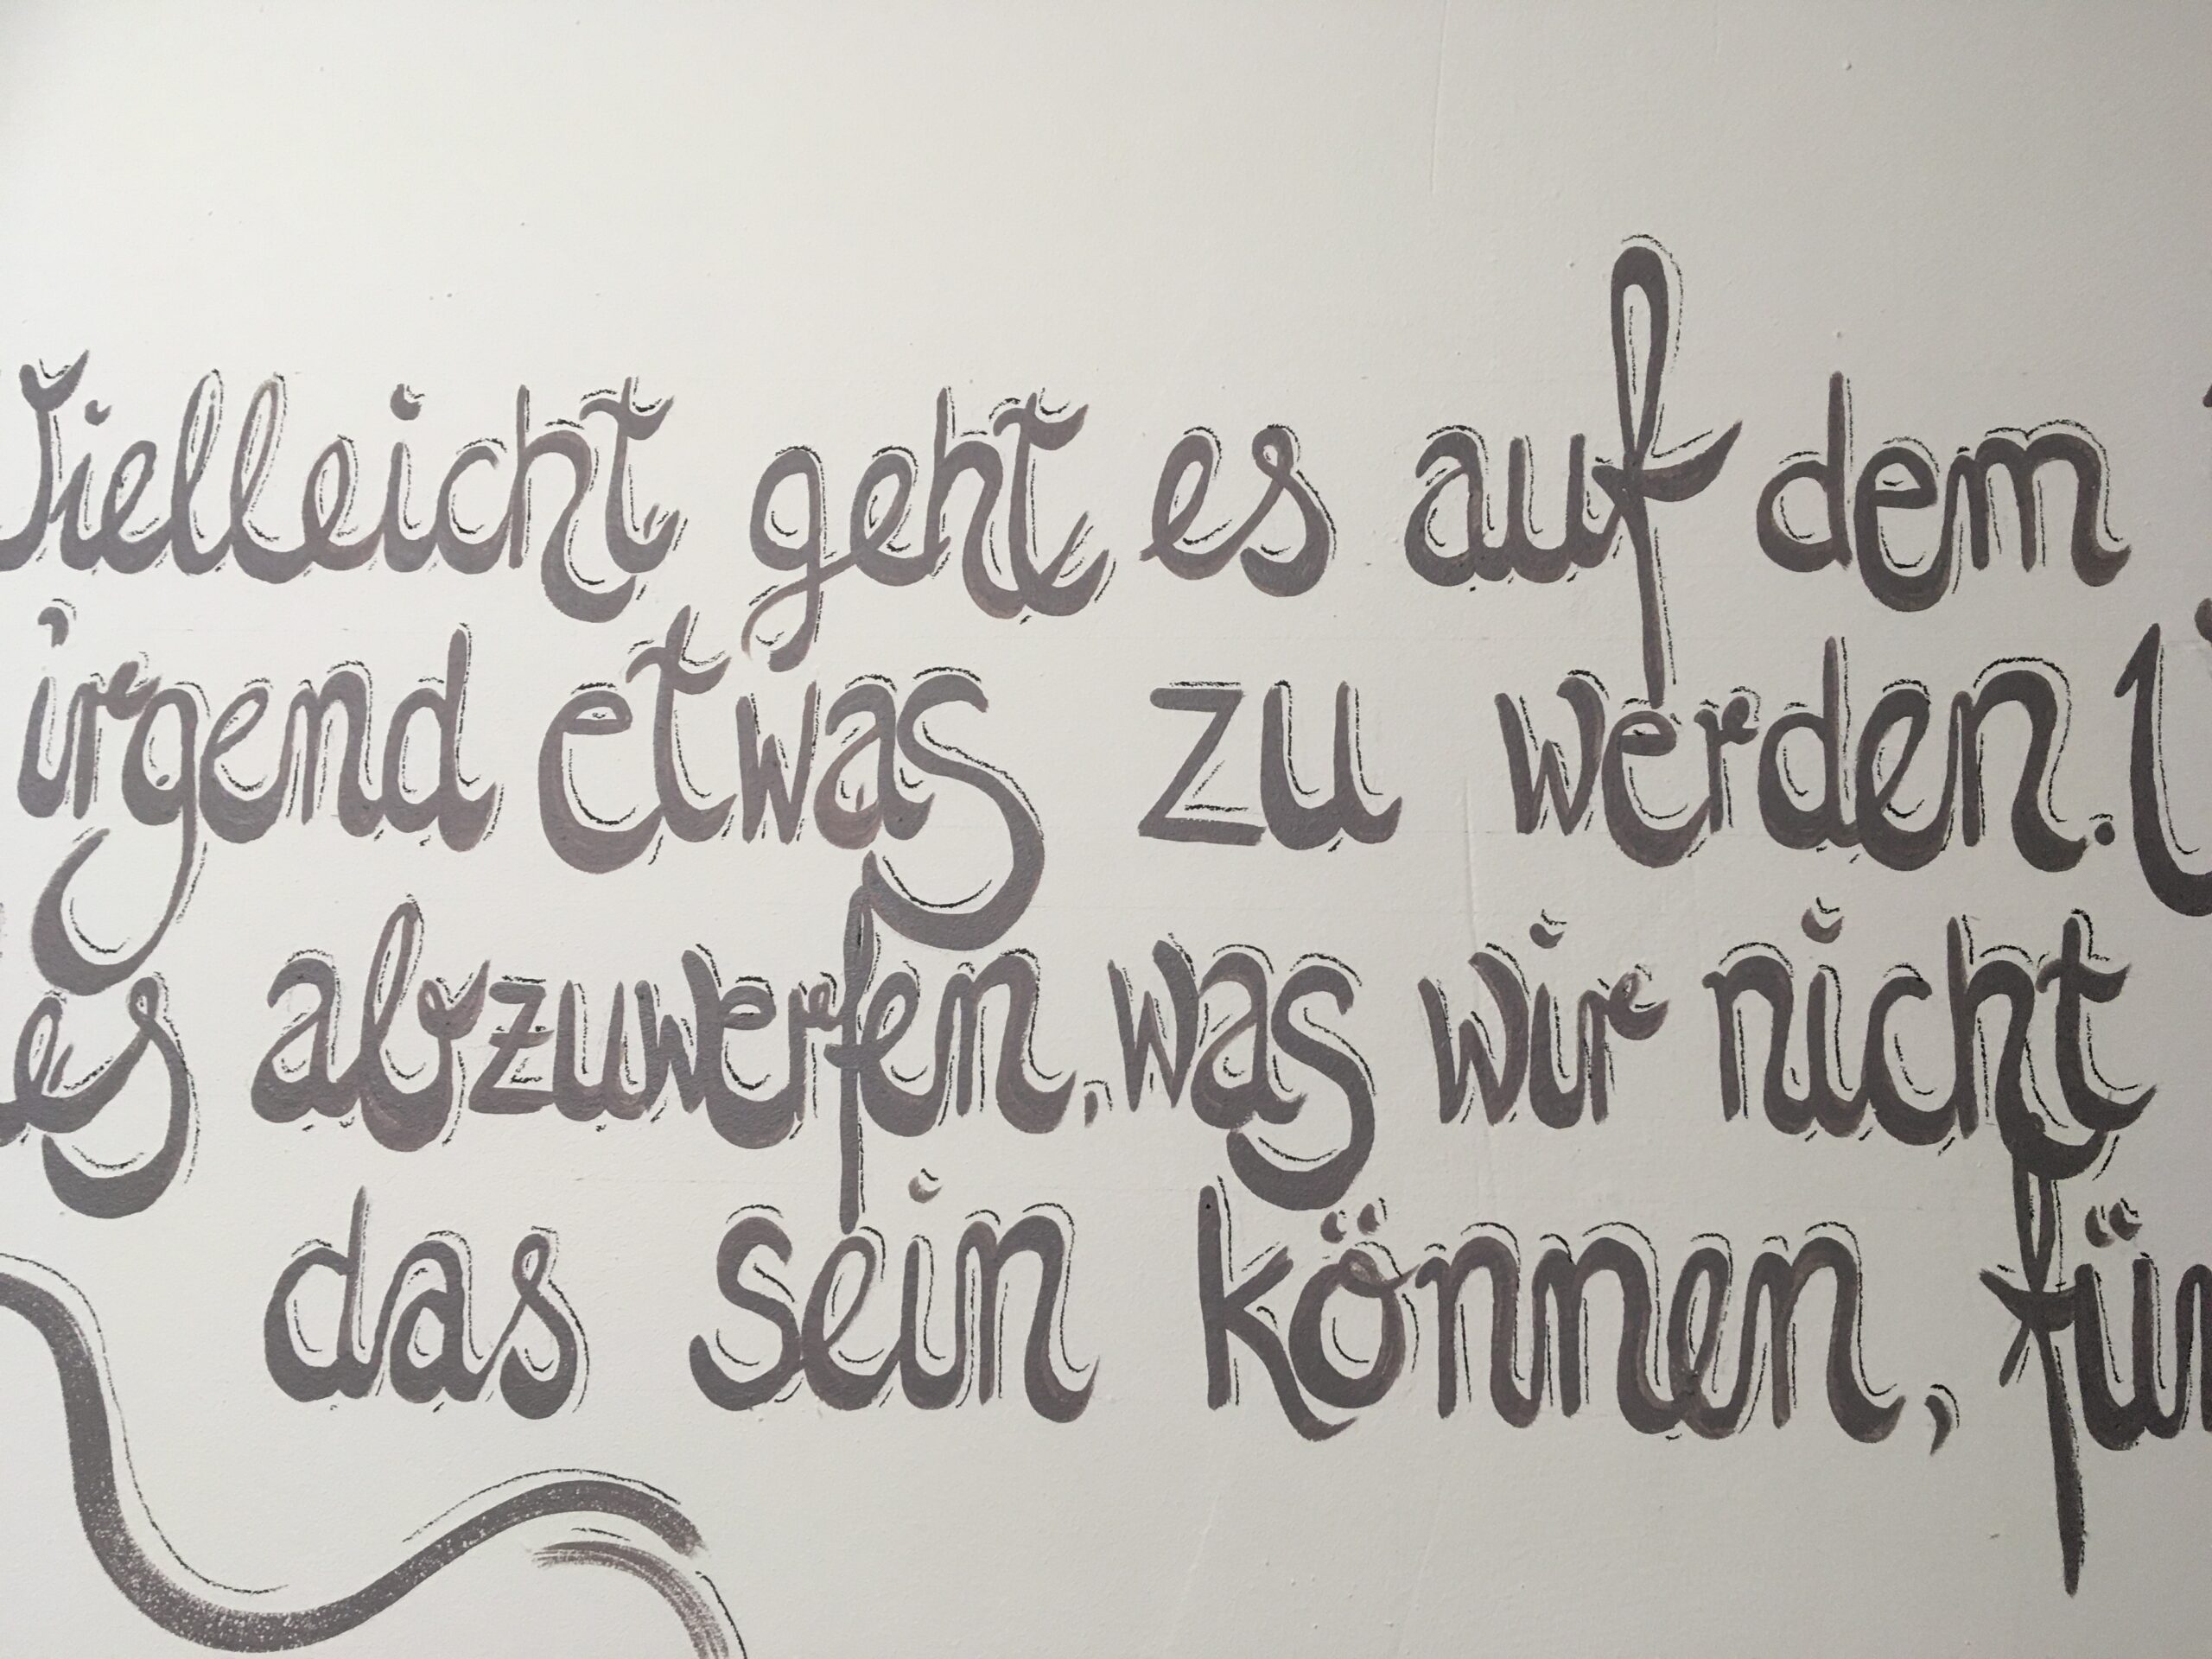 Vielleicht geht es auf dem
irgend etwas zu werden.
es abzuwerfen, was wir nicht
das sein können, für